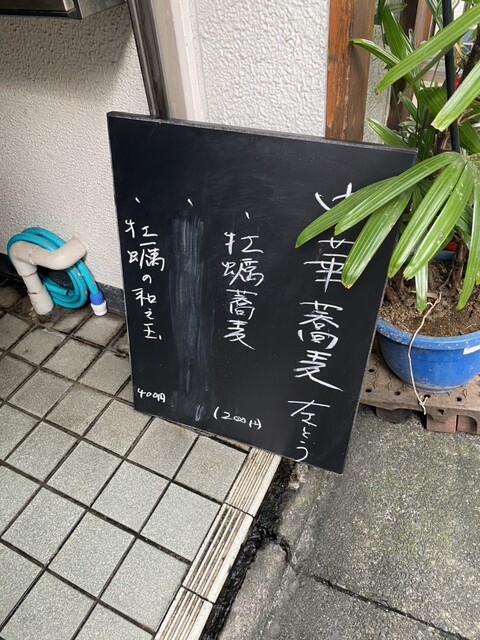 中華蕎麦 左とう
、牡蠣蕎麦 1200円
、
、牡蠣の和え玉 400円